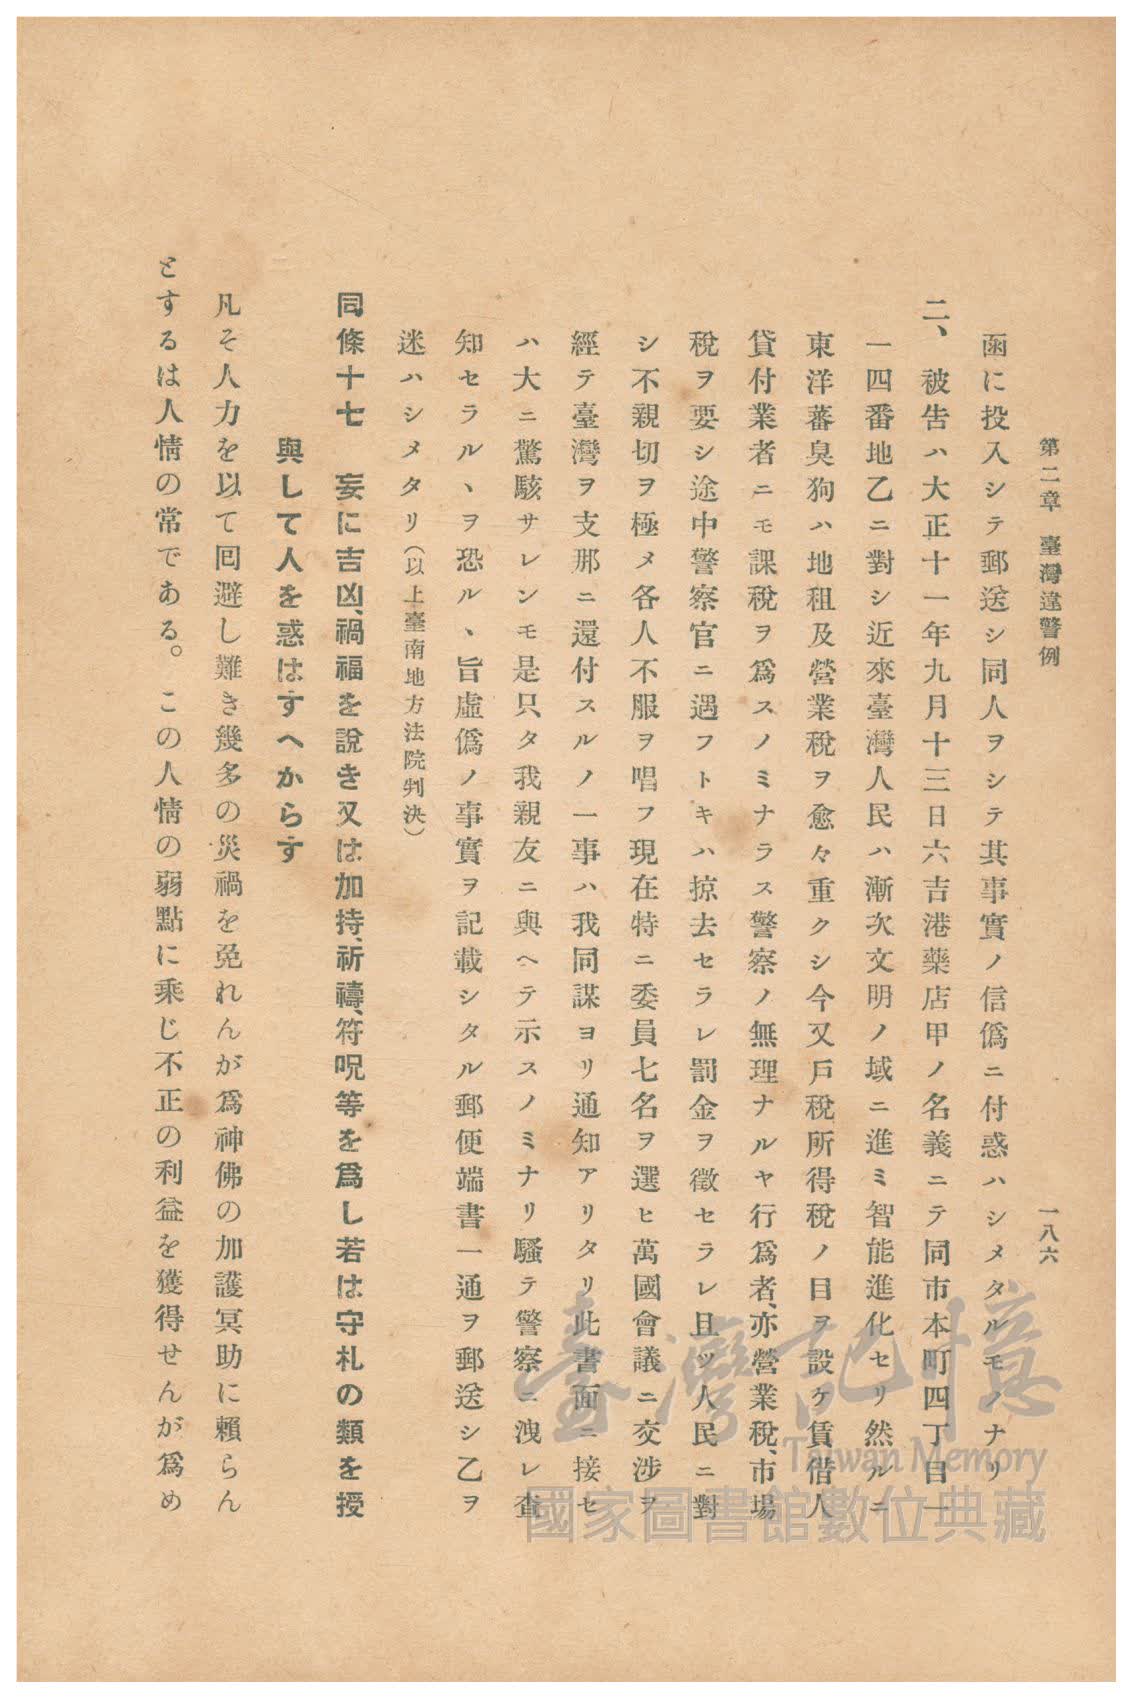 第二章　臺灣違警例　一八六
函に投入シテ郵送シ同人ヲシテ其事實ノ信僞ニ付惑ハシメタルモノナリ
二、被吿ハ大正十一年九月十三日六吉港藥店甲ノ名義ニテ同市本町四丁目一
一四番地乙ニ對シ近來臺灣人民ハ漸次文明ノ域ニ進ミ智能進化セリ然ルニ
東洋蕃臭狗ハ地租及營業稅ヲ愈々重クシ今又戶稅所得稅ノ目ヲ設ケ賃借人
貸付業者ニモ課稅ヲ爲スノミナラス警察ノ無理ナルヤ行爲者、亦營業稅、市場
稅ヲ要シ途中警察官ニ遇フトキハ掠去セラレ罰金ヲ徵セラレ且ツ人民ニ對
シ不親切ヲ極メ各人不服ヲ唱フ現在特ニ委員七名ヲ選ヒ萬國會議ニ交涉ヲ
經テ臺灣ヲ支那ニ還付スルノ一事ハ我同謀ヨリ通知アリタリ此書面ニ接セ
ハ大ニ驚駭サレンモ是只タ我親友ニ與ヘテ示スノミナリ騷テ警察ニ洩レ査
知セラルヽヲ恐ルヽ旨虛僞ノ事實ヲ記載シタル郵便端書一通ヲ郵送シ乙ヲ
迷ハシメタリ（以上臺南地方法院判決）
同條十七　妄に吉凶、禍福を說き又は加持、祈禱、符呪等を爲し若は守札の類を授
與して人を惑はすへからす
凡そ人力を以て囘避し難き幾多の災禍を免れんが爲神佛の加護冥助に賴らん
とするは人情の常である。この人情の弱點に乘じ不正の利益を獲得せんが爲め
臺灣記憶
Taiwan Memory
國家圖書館數位典藏